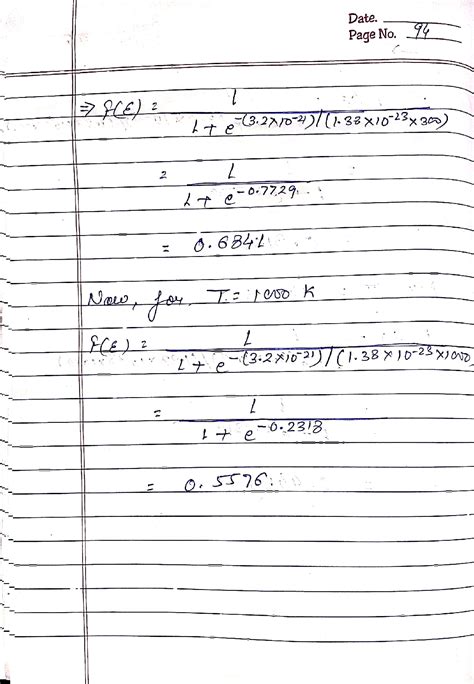 Date.
Page No. 94
⇒ f(E) = 1
1 + e^-(3.2×10^-21)/(1.38×10^-23×300)
= 1
1 + e^-0.7729
= 0.6841
Now, for T = 1000 K
f(E) = 1
1 + e^-(3.2×10^-21)/(1.38×10^-23×1000)
= 1
1 + e^-0.2318
= 0.5576